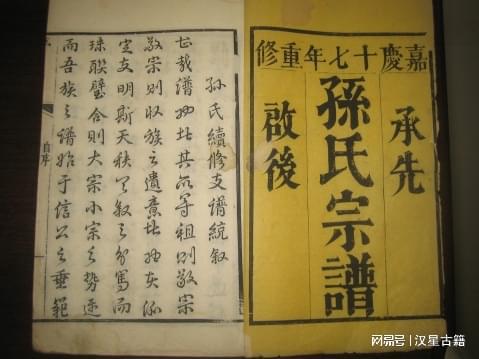 嘉慶十七年重修
承先
孫氏宗譜
啟後
孫氏續修支譜統叙
哉譜其所尊祖則敬宗
敬宗則收族之遺意
定支明斯天秩天叙之分篤而
珠聯璧合則大宗小宗之勢
而吾族之譜始于信公之垂範
自序
网易号 | 汉星古籍